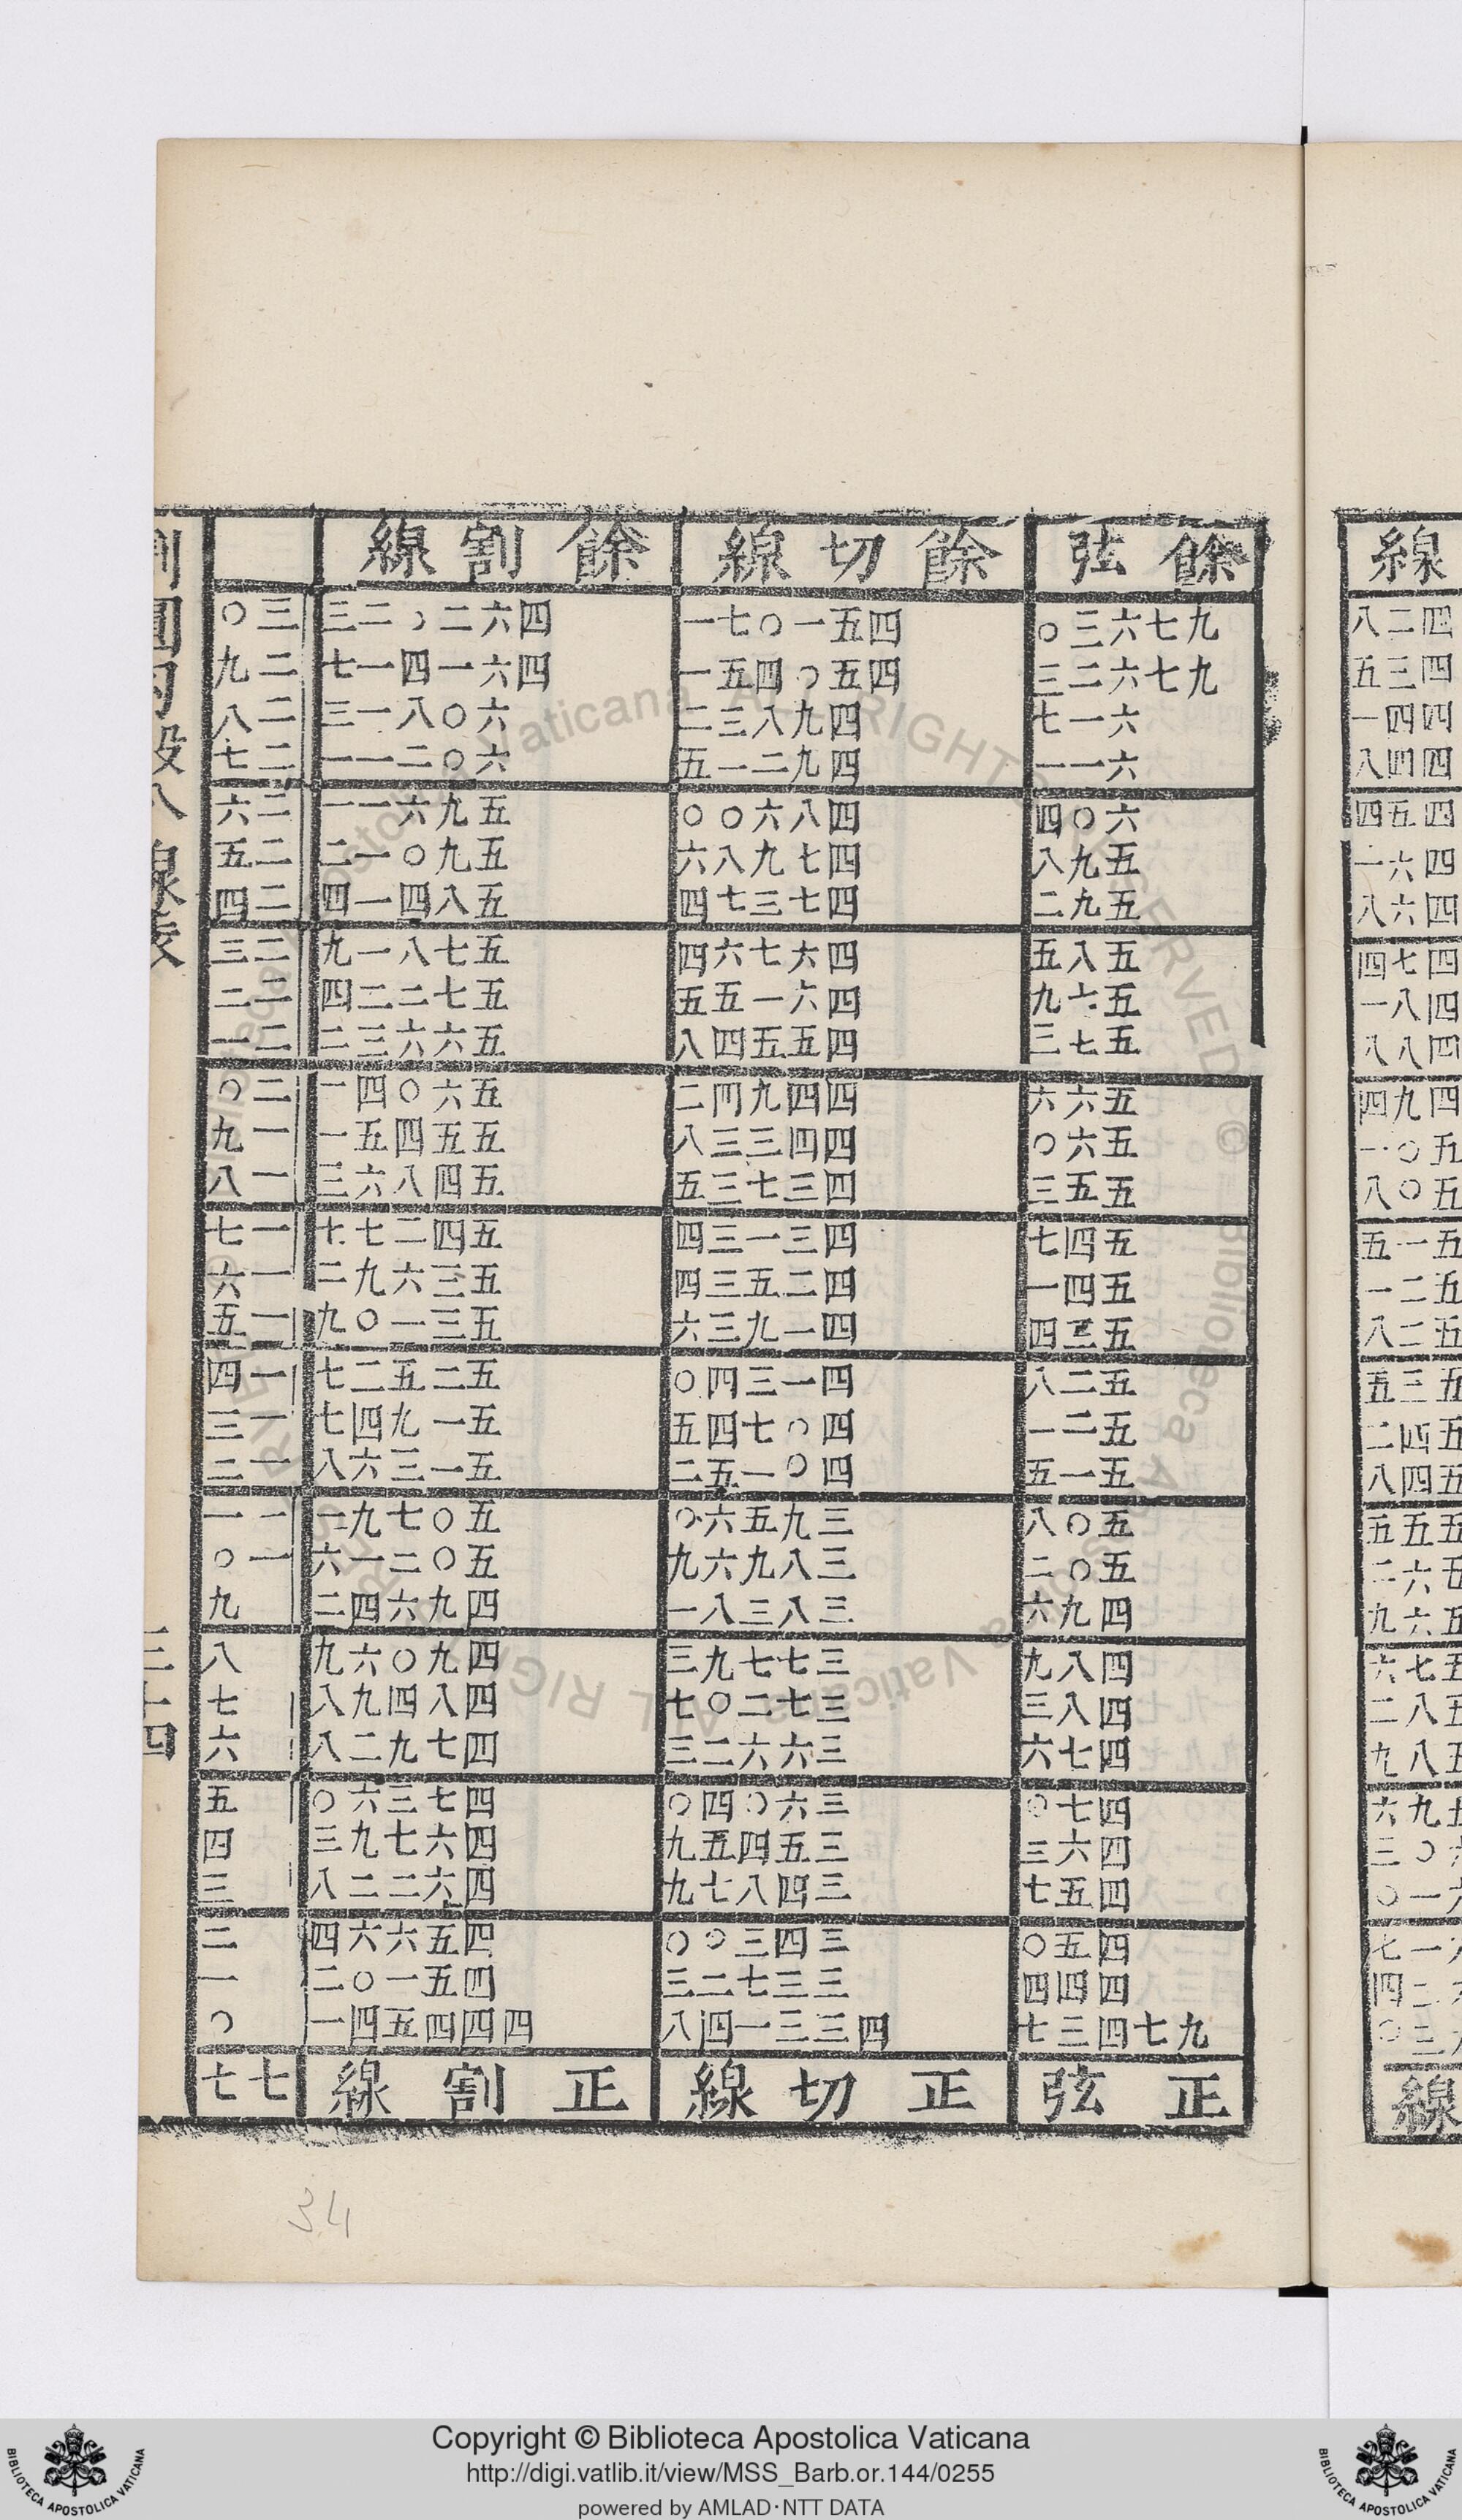 餘弦 餘切線 餘割線
九七六三〇 四五一〇七一 四六二〇二三 三〇
九七六二三 四五〇四五一 四六一四一七 二九
六一七 四九八三二 六〇八一三 二八
六一一 四九二一五 六〇二一一 二七
六〇四 四八六〇〇 五九六一一 二六
五九八 四七九八六 五九〇一二 二五
五九二 四七三七四 五八四一四 二四
五八五 四六七六四 五七八一九 二三
五七九 四六一五五 五七二二四 二二
五七三 四五五四八 五六六三二 二一
五六六 四四九四二 五六〇四一 二〇
五六〇 四四三三八 五五四五一 一九
五五三 四三七三五 五四八六三 一八
五四七 四三一三四 五四二七七 一七
五四一 四二五三四 五三六九二 一六
五三四 四一九三六 五三一〇九 一五
五二八 四一三四〇 五二五二七 一四
五二一 四〇七四五 五一九四七 一三
五一五 四〇一五二 五一三六八 一二
五〇八 三九五六〇 五〇七九一 一一
五〇二 三八九六九 五〇二一六 一〇
四九六 三八三八一 四九六四二 九
四八九 三七七九三 四九〇六九 八
四八三 三七二〇七 四八四九八 七
四七六 三六六二三 四七九二八 六
四七〇 三六〇四〇 四七三六〇 五
四六三 三五四五九 四六七九三 四
四五七 三四八七九 四六二二八 三
四五〇 三四三〇〇 四五六六四 二
四四四 三三七二三 四五一〇二 一
九七四三七 四三三一四八 四四四五四一 〇
正弦 正切線 正割線 七七
割圓勾股八線表 三十四
34
Copyright © Biblioteca Apostolica Vaticana
http://digi.vatlib.it/view/MSS_Barb.or.144/0255
powered by AMLAD·NTT DATA
BIBLIOTECA APOSTOLICA VATICANA
BIBLIOTECA APOSTOLICA VATICANA